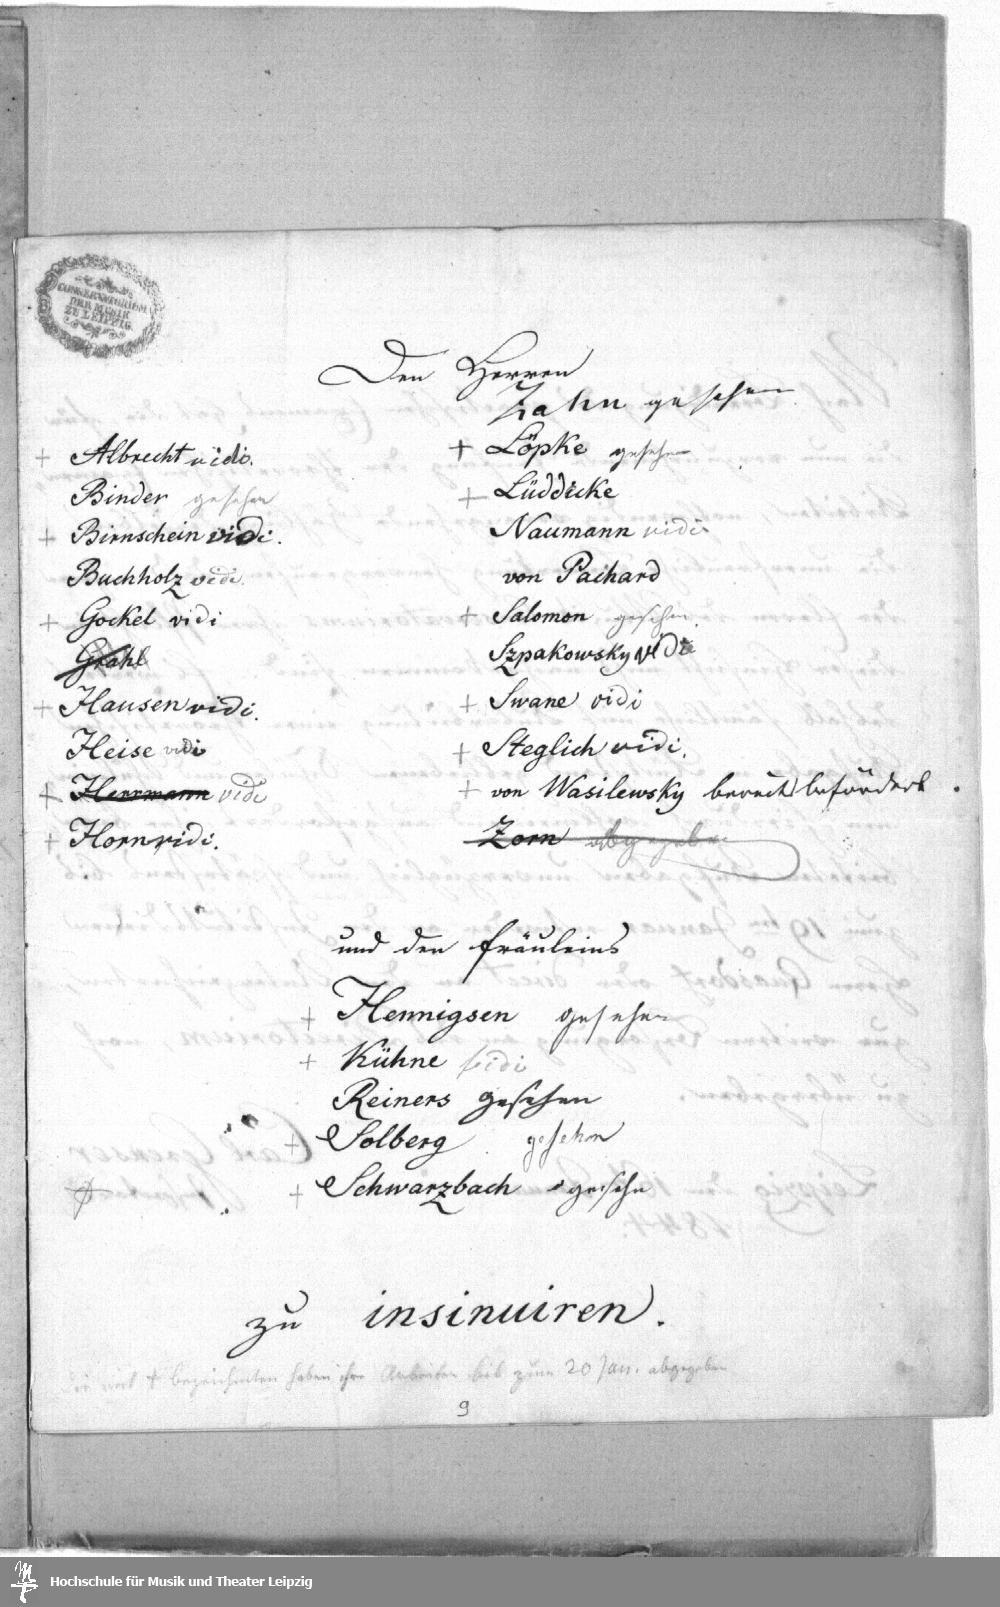 CONSERVATORIUM
DER MUSIK
ZU LEIPZIG.
Den Herren
Zahn gesehen
+ Albrecht vidi.
Binder gesehen
+ Birnschein vidi.
Buchholz vidi.
+ Gockel vidi
Grahl
+ Hausen vidi.
Heise vidi
+ Herrmann vidi
+ Horn vidi.
+ Löpke gesehen
+ Lüddicke
Naumann vidi
von Pachard
+ Salomon gesehen.
Szpakowsky vidi
+ Swane vidi
+ Steglich vidi.
+ von Wasilewsky bereits befördert.
Zorn abgegeben
und den Fräuleins
+ Hennigsen gesehen
+ Kühne vidi
Reiners gesehen
+ Solberg gesehen
+ Schwarzbach gesehn
zu insinuiren.
Die mit + bezeichneten haben ihre Arbeiten bis zum 20 Jan. abgegeben
9
Hochschule für Musik und Theater Leipzig